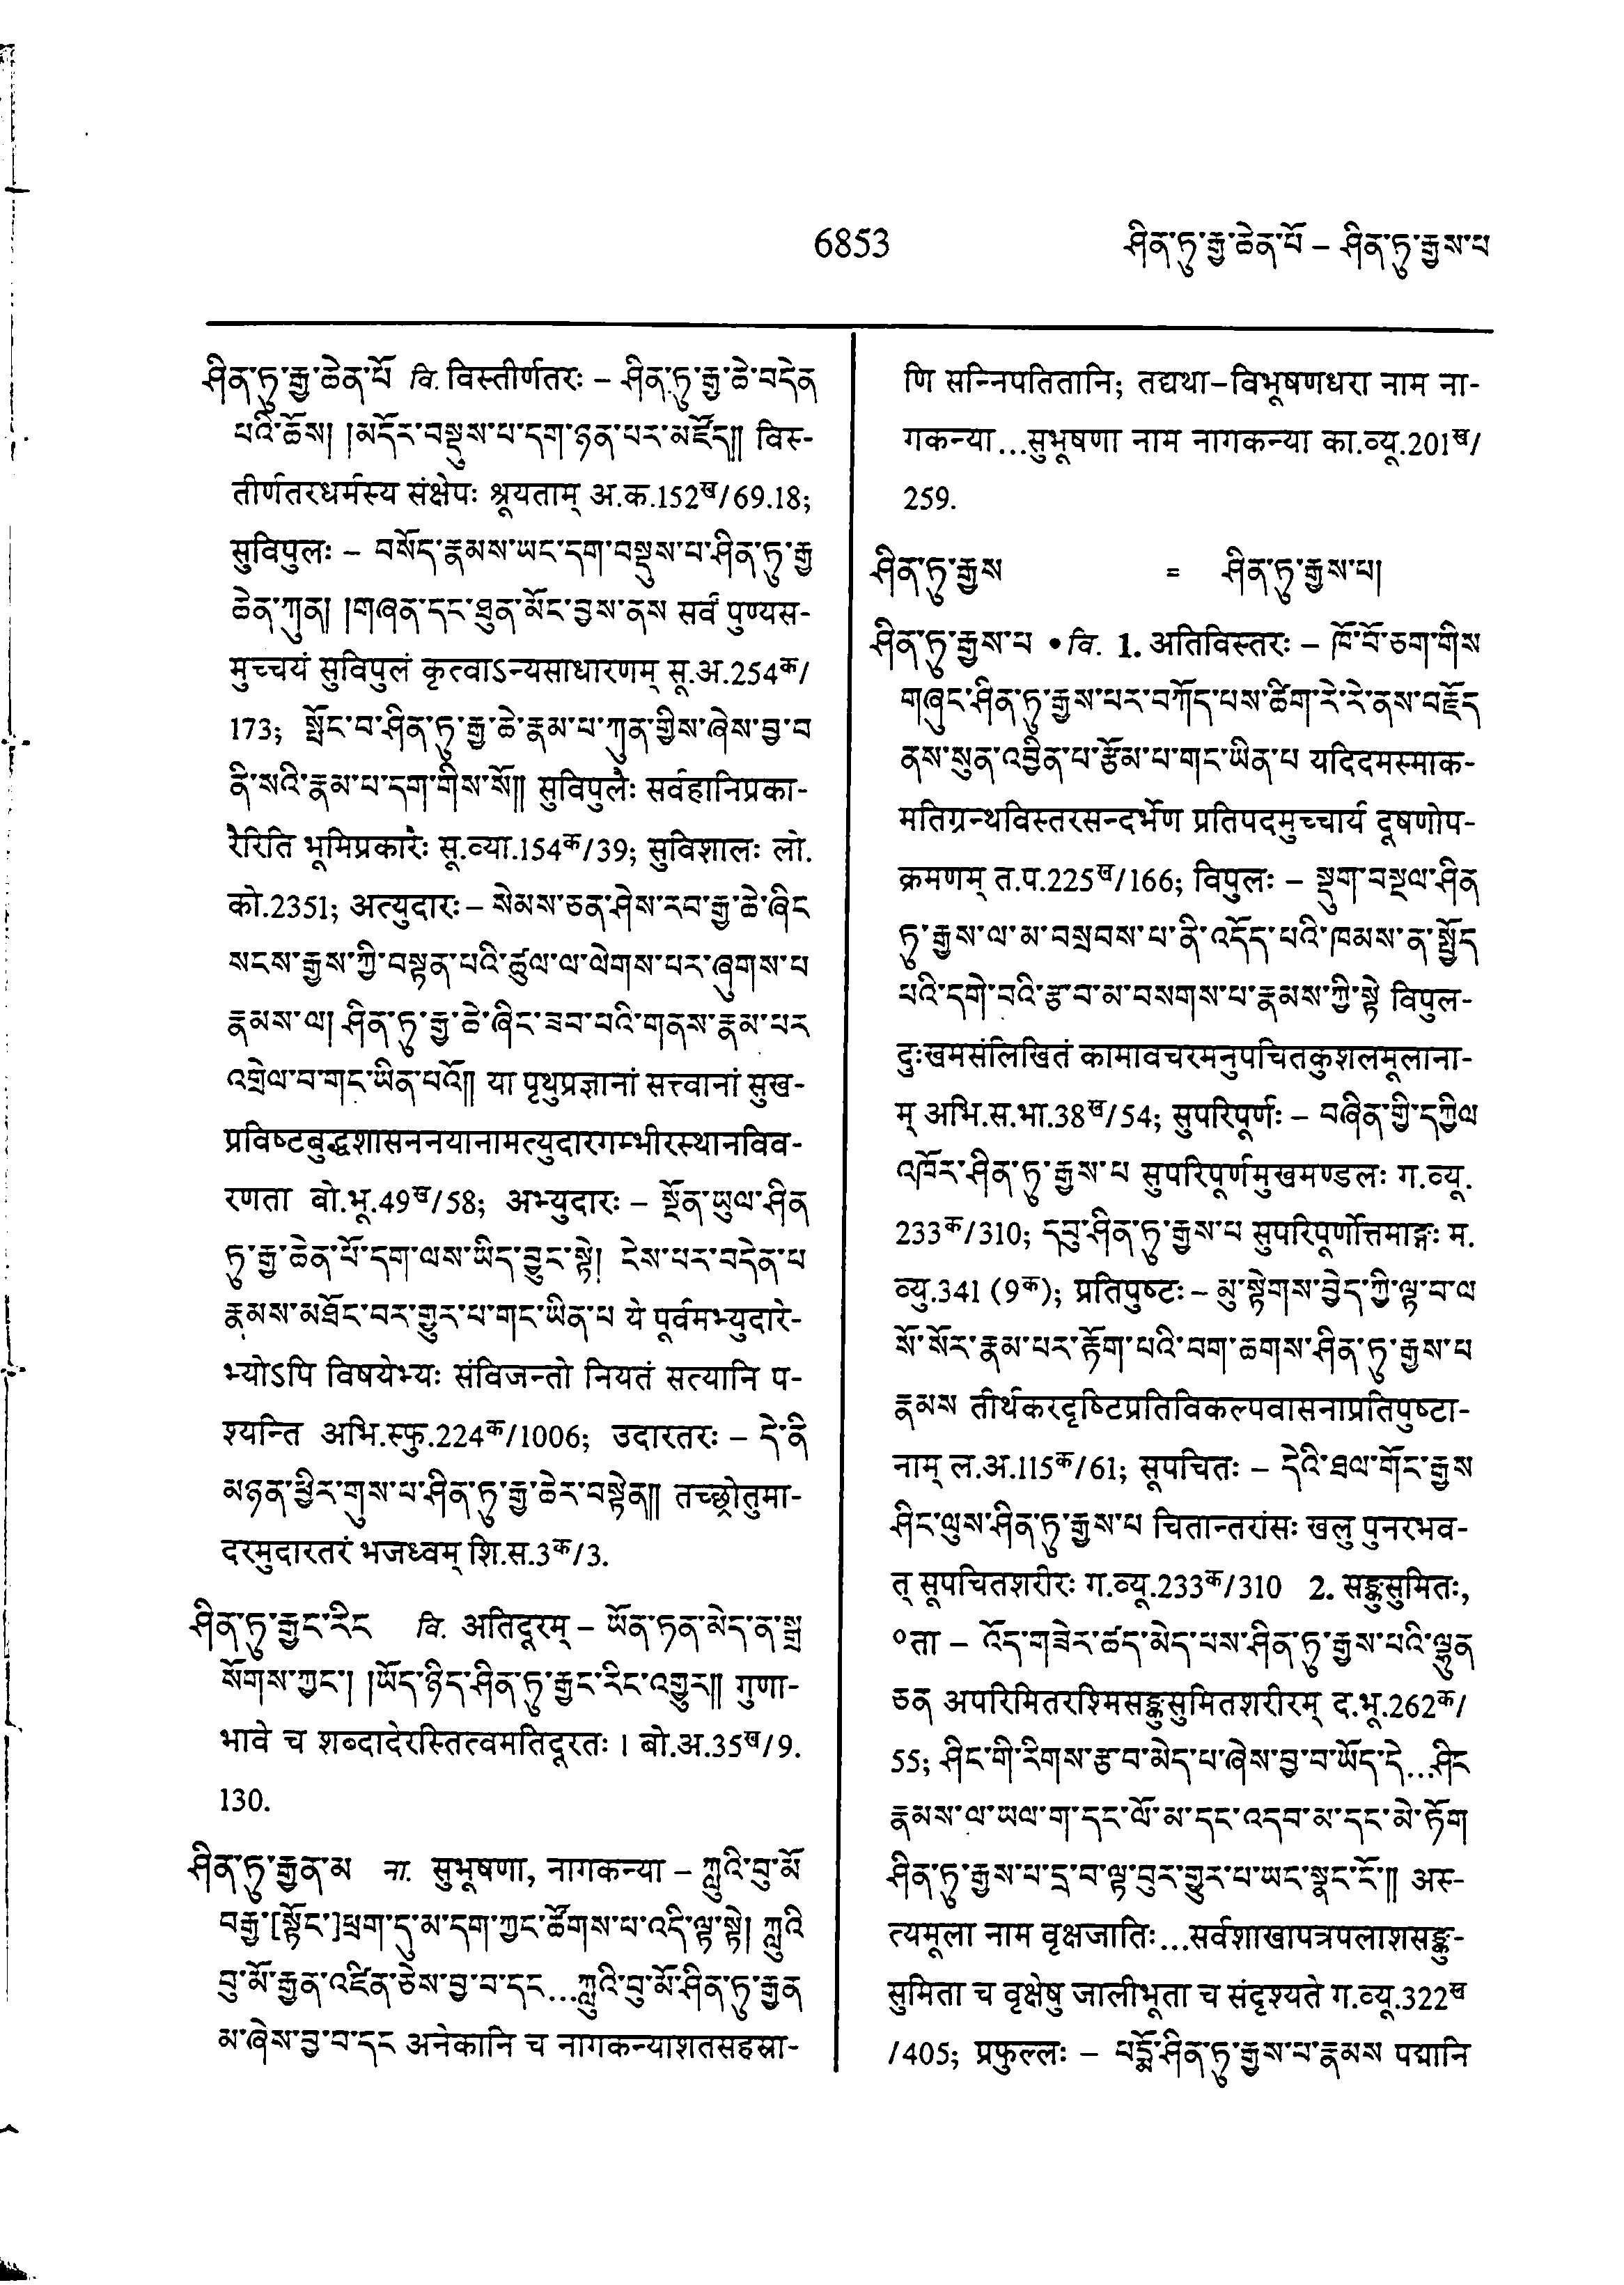 6853
ཤིན་ཏུ་རྒྱ་ཆེན་པོ – ཤིན་ཏུ་རྒྱས་པ
ཤིན་ཏུ་རྒྱ་ཆེན་པོ वि. विस्तीर्णतरः – ཤིན་ཏུ་རྒྱ་ཆེ་བདེན
པའི་ཆོས། །མདོར་བསྡུས་པ་དག་ཉན་པར་མཛོད།། विस्-
तीर्णतरधर्मस्य संक्षेपः श्रूयताम् अ.क.152ख/69.18;
सुविपुलः – བསོད་རྣམས་ཡང་དག་བསྡུས་པ་ཤིན་ཏུ་རྒྱ
ཆེན་ཀུན། །གཞན་དང་ཐུན་མོང་བྱས་ནས सर्वं पुण्यस-
मुच्चयं सुविपुलं कृत्वाऽन्यसाधारणम् सू.अ.254क/
173; སྤོང་བ་ཤིན་ཏུ་རྒྱ་ཆེ་རྣམ་པ་ཀུན་གྱིས་ཞེས་བྱ་བ
ནི་སའི་རྣམ་པ་དག་གིས་སོ།། सुविपुलैः सर्वहानिप्रका-
रैरिति भूमिप्रकारैः सू.व्या.154क/39; सुविशालः लो.
को.2351; अत्युदारः – སེམས་ཅན་ཤེས་རབ་རྒྱ་ཆེ་ཞིང
སངས་རྒྱས་ཀྱི་བསྟན་པའི་ཚུལ་ལ་ལེགས་པར་ཞུགས་པ
རྣམས་ལ། ཤིན་ཏུ་རྒྱ་ཆེ་ཞིང་ཟབ་པའི་གནས་རྣམ་པར
འགྲེལ་བ་གང་ཡིན་པའོ།། या पृथुप्रज्ञानां सत्त्वानां सुख-
प्रविष्टबुद्धशासननयानामत्युदारगम्भीरस्थानविव-
रणता बो.भू.49ख/58; अभ्युदारः – སྔོན་ཡུལ་ཤིན
ཏུ་རྒྱ་ཆེན་པོ་དག་ལས་ཡིད་བྱུང་སྟེ། ངེས་པར་བདེན་པ
རྣམས་མཐོང་བར་གྱུར་པ་གང་ཡིན་པ ये पूर्वमभ्युदारे-
भ्योऽपि विषयेभ्यः संविजन्तो नियतं सत्यानि प-
श्यन्ति अभि.स्फु.224क/1006; उदारतरः – དེ་ནི
མཉན་ཕྱིར་གུས་པ་ཤིན་ཏུ་རྒྱ་ཆེར་བསྟེན།། तच्छ्रोतुमा-
दरमुदारतरं भजध्वम् शि.स.3क/3.
ཤིན་ཏུ་རྒྱང་རིང वि. अतिदूरम् – ཡོན་ཏན་མེད་ན་སྒྲ
སོགས་ཀྱང་། །ཡོད་ཉིད་ཤིན་ཏུ་རྒྱང་རིང་འགྱུར།། गुणा-
भावे च शब्दादेरस्तित्वमतिदूरतः । बो.अ.35ख/9.
130.
ཤིན་ཏུ་རྒྱན་མ ना. सुभूषणा, नागकन्या – ཀླུའི་བུ་མོ
བརྒྱ་[སྟོང་]ཕྲག་དུ་མ་དག་ཀྱང་ཚོགས་པ་འདི་ལྟ་སྟེ། ཀླུའི
བུ་མོ་རྒྱན་འཛིན་ཅེས་བྱ་བ་དང...ཀླུའི་བུ་མོ་ཤིན་ཏུ་རྒྱན
མ་ཞེས་བྱ་བ་དང अनेकानि च नागकन्याशतसहस्रा-
णि सन्निपतितानि; तद्यथा–विभूषणधरा नाम ना-
गकन्या...सुभूषणा नाम नागकन्या का.व्यू.201ख/
259.
ཤིན་ཏུ་རྒྱས = ཤིན་ཏུ་རྒྱས་པ།
ཤིན་ཏུ་རྒྱས་པ • वि. 1. अतिविस्तरः – ཁོ་བོ་ཅག་གིས
གཞུང་ཤིན་ཏུ་རྒྱས་པར་བཀོད་པས་ཚིག་རེ་རེ་ནས་བརྗོད
ནས་སུན་འབྱིན་པ་རྩོམ་པ་གང་ཡིན་པ यदिदमस्माक-
मतिग्रन्थविस्तरसन्दर्भेण प्रतिपदमुच्चार्य दूषणोप-
क्रमणम् त.प.225ख/166; विपुलः – སྡུག་བསྔལ་ཤིན
ཏུ་རྒྱས་ལ་མ་བསྲབས་པ་ནི་འདོད་པའི་ཁམས་ན་སྤྱོད
པའི་དགེ་བའི་རྩ་བ་མ་བསགས་པ་རྣམས་ཀྱི་སྟེ विपुल-
दुःखमसंलिखितं कामावचरमनुपचितकुशलमूलाना-
म् अभि.स.भा.38ख/54; सुपरिपूर्णः – བཞིན་གྱི་དཀྱིལ
འཁོར་ཤིན་ཏུ་རྒྱས་པ सुपरिपूर्णमुखमण्डलः ग.व्यू.
233क/310; དབུ་ཤིན་ཏུ་རྒྱས་པ सुपरिपूर्णोत्तमाङ्गः म.
व्यु.341 (9क); प्रतिपुष्टः – མུ་སྟེགས་བྱེད་ཀྱི་ལྟ་བ་ལ
སོ་སོར་རྣམ་པར་རྟོག་པའི་བག་ཆགས་ཤིན་ཏུ་རྒྱས་པ
རྣམས तीर्थकरदृष्टिप्रतिविकल्पवासनाप्रतिपुष्टा-
नाम् ल.अ.115क/61; सूपचितः – དེའི་ཐལ་གོང་རྒྱས
ཤིང་ལུས་ཤིན་ཏུ་རྒྱས་པ चितान्तरांसः खलु पुनरभव-
त् सूपचितशरीरः ग.व्यू.233क/310 2. सङ्कुसुमितः,
०ता – འོད་གཟེར་ཚད་མེད་པས་ཤིན་ཏུ་རྒྱས་པའི་ལྷུན
ཅན अपरिमितरश्मिसङ्कुसुमितशरीरम् द.भू.262क/
55; ཤིང་གི་རིགས་རྩ་བ་མེད་པ་ཞེས་བྱ་བ་ཡོད་དེ...ཤིང
རྣམས་ལ་ཡལ་ག་དང་ལོ་མ་དང་འདབ་མ་དང་མེ་ཏོག
ཤིན་ཏུ་རྒྱས་པ་དྲ་བ་ལྟ་བུར་གྱུར་པ་ཡང་སྣང་ངོ་།། अस्-
त्यमूला नाम वृक्षजातिः...सर्वशाखापत्रपलाशसङ्कु-
सुमिता च वृक्षेषु जालीभूता च संदृश्यते ग.व्यू.322ख
/405; प्रफुल्लः – པདྨོ་ཤིན་ཏུ་རྒྱས་པ་རྣམས पद्मानि